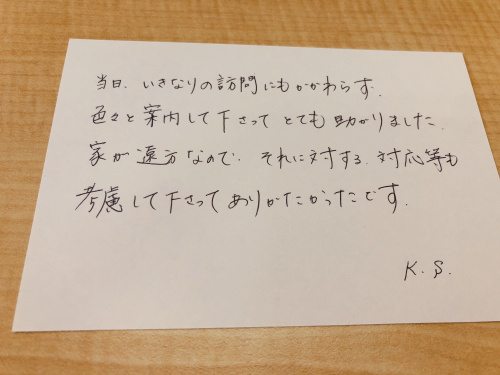 当日、いきなりの訪問にもかかわらず、
色々と案内して下さってとても助かりました。
家が遠方なので、それに対する、対応等も
考慮して下さってありがたかったです。
K.S.